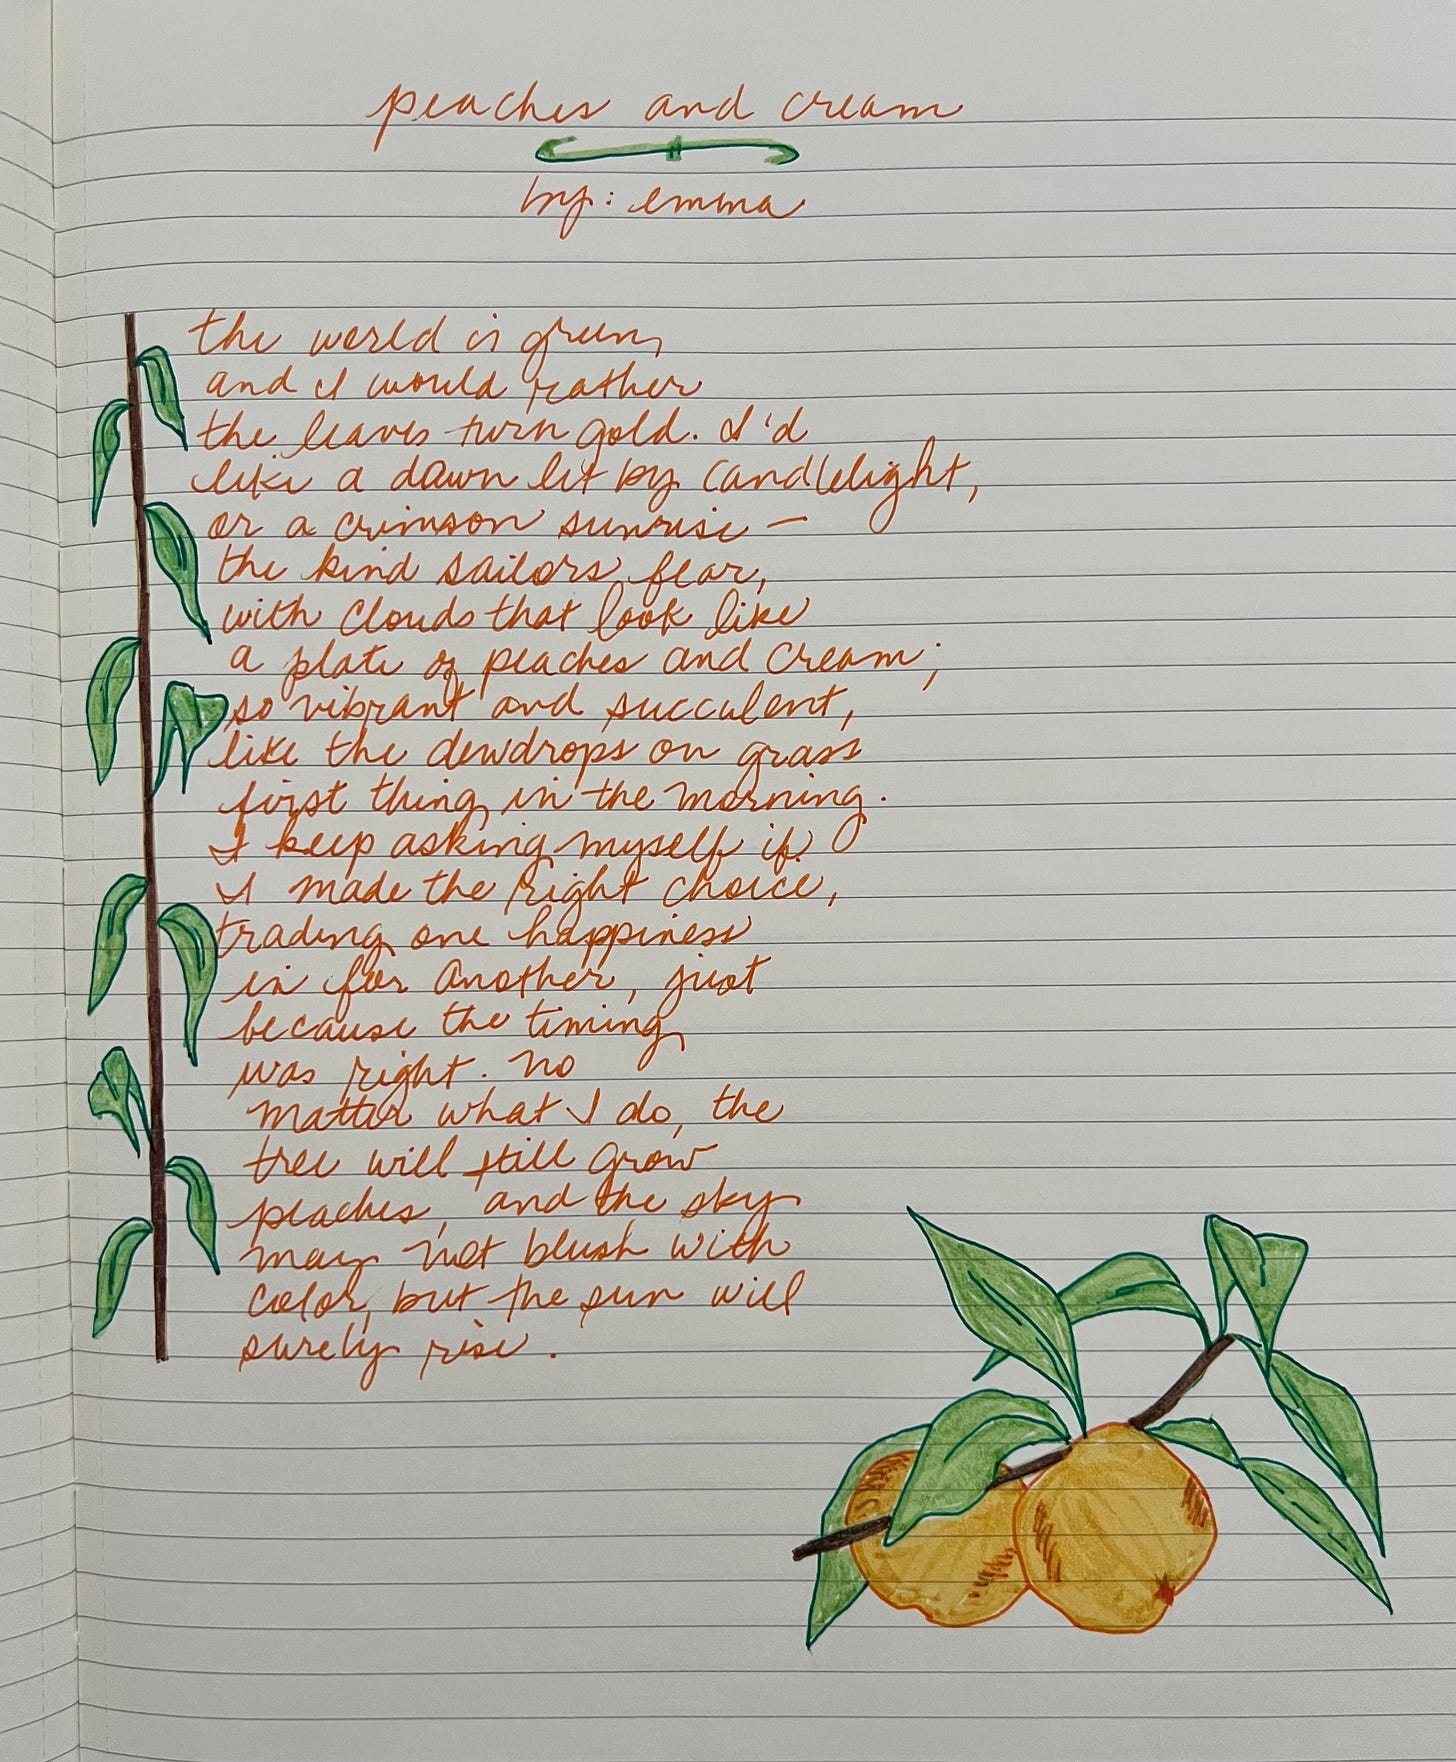 peaches and cream
by: emma
the world is green,
and I would rather
the leaves turn gold. I'd
like a dawn lit by candlelight,
or a crimson sunrise —
the kind sailors fear,
with clouds that look like
a plate of peaches and cream;
so vibrant and succulent,
like the dewdrops on grass
first thing in the morning.
I keep asking myself if
I made the right choice,
trading one happiness
in for another, just
because the timing
was right. no
matter what I do, the
tree will still grow
peaches, and the sky
may not blush with
color, but the sun will
surely rise.